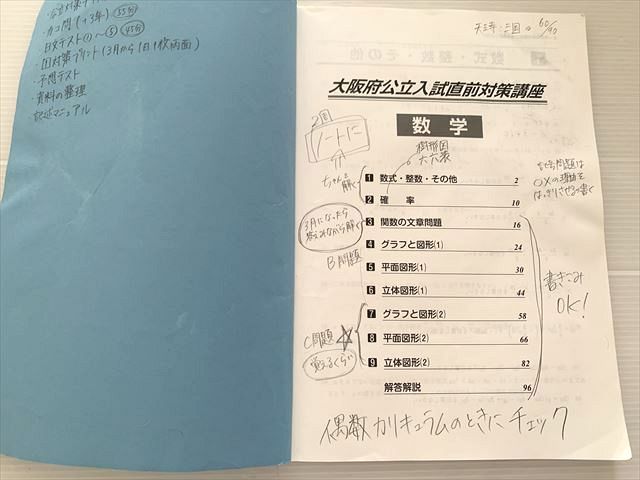 ・カコ問(+3年) 55分
・日文テスト①～⑤ 45分
・国対策プリント(3月から1日1枚両面)
・予想テスト
・資料の整理
・記述マニュアル
60/90
数式・整数・その他
大阪府公立入試直前対策講座
数学
2回
ノートに
樹形図
大六表
ちゃんと解く
1 数式・整数・その他 2
2 確率 10
3 関数の文章問題 16
4 グラフと図形(1) 24
5 平面図形(1) 30
6 立体図形(1) 44
7 グラフと図形(2) 58
8 平面図形(2) 66
9 立体図形(2) 82
解答解説 96
3月になったら
B問題
C問題
覚えるくらい
書きこみ
OK!
偶数カリキュラムのときにチェック